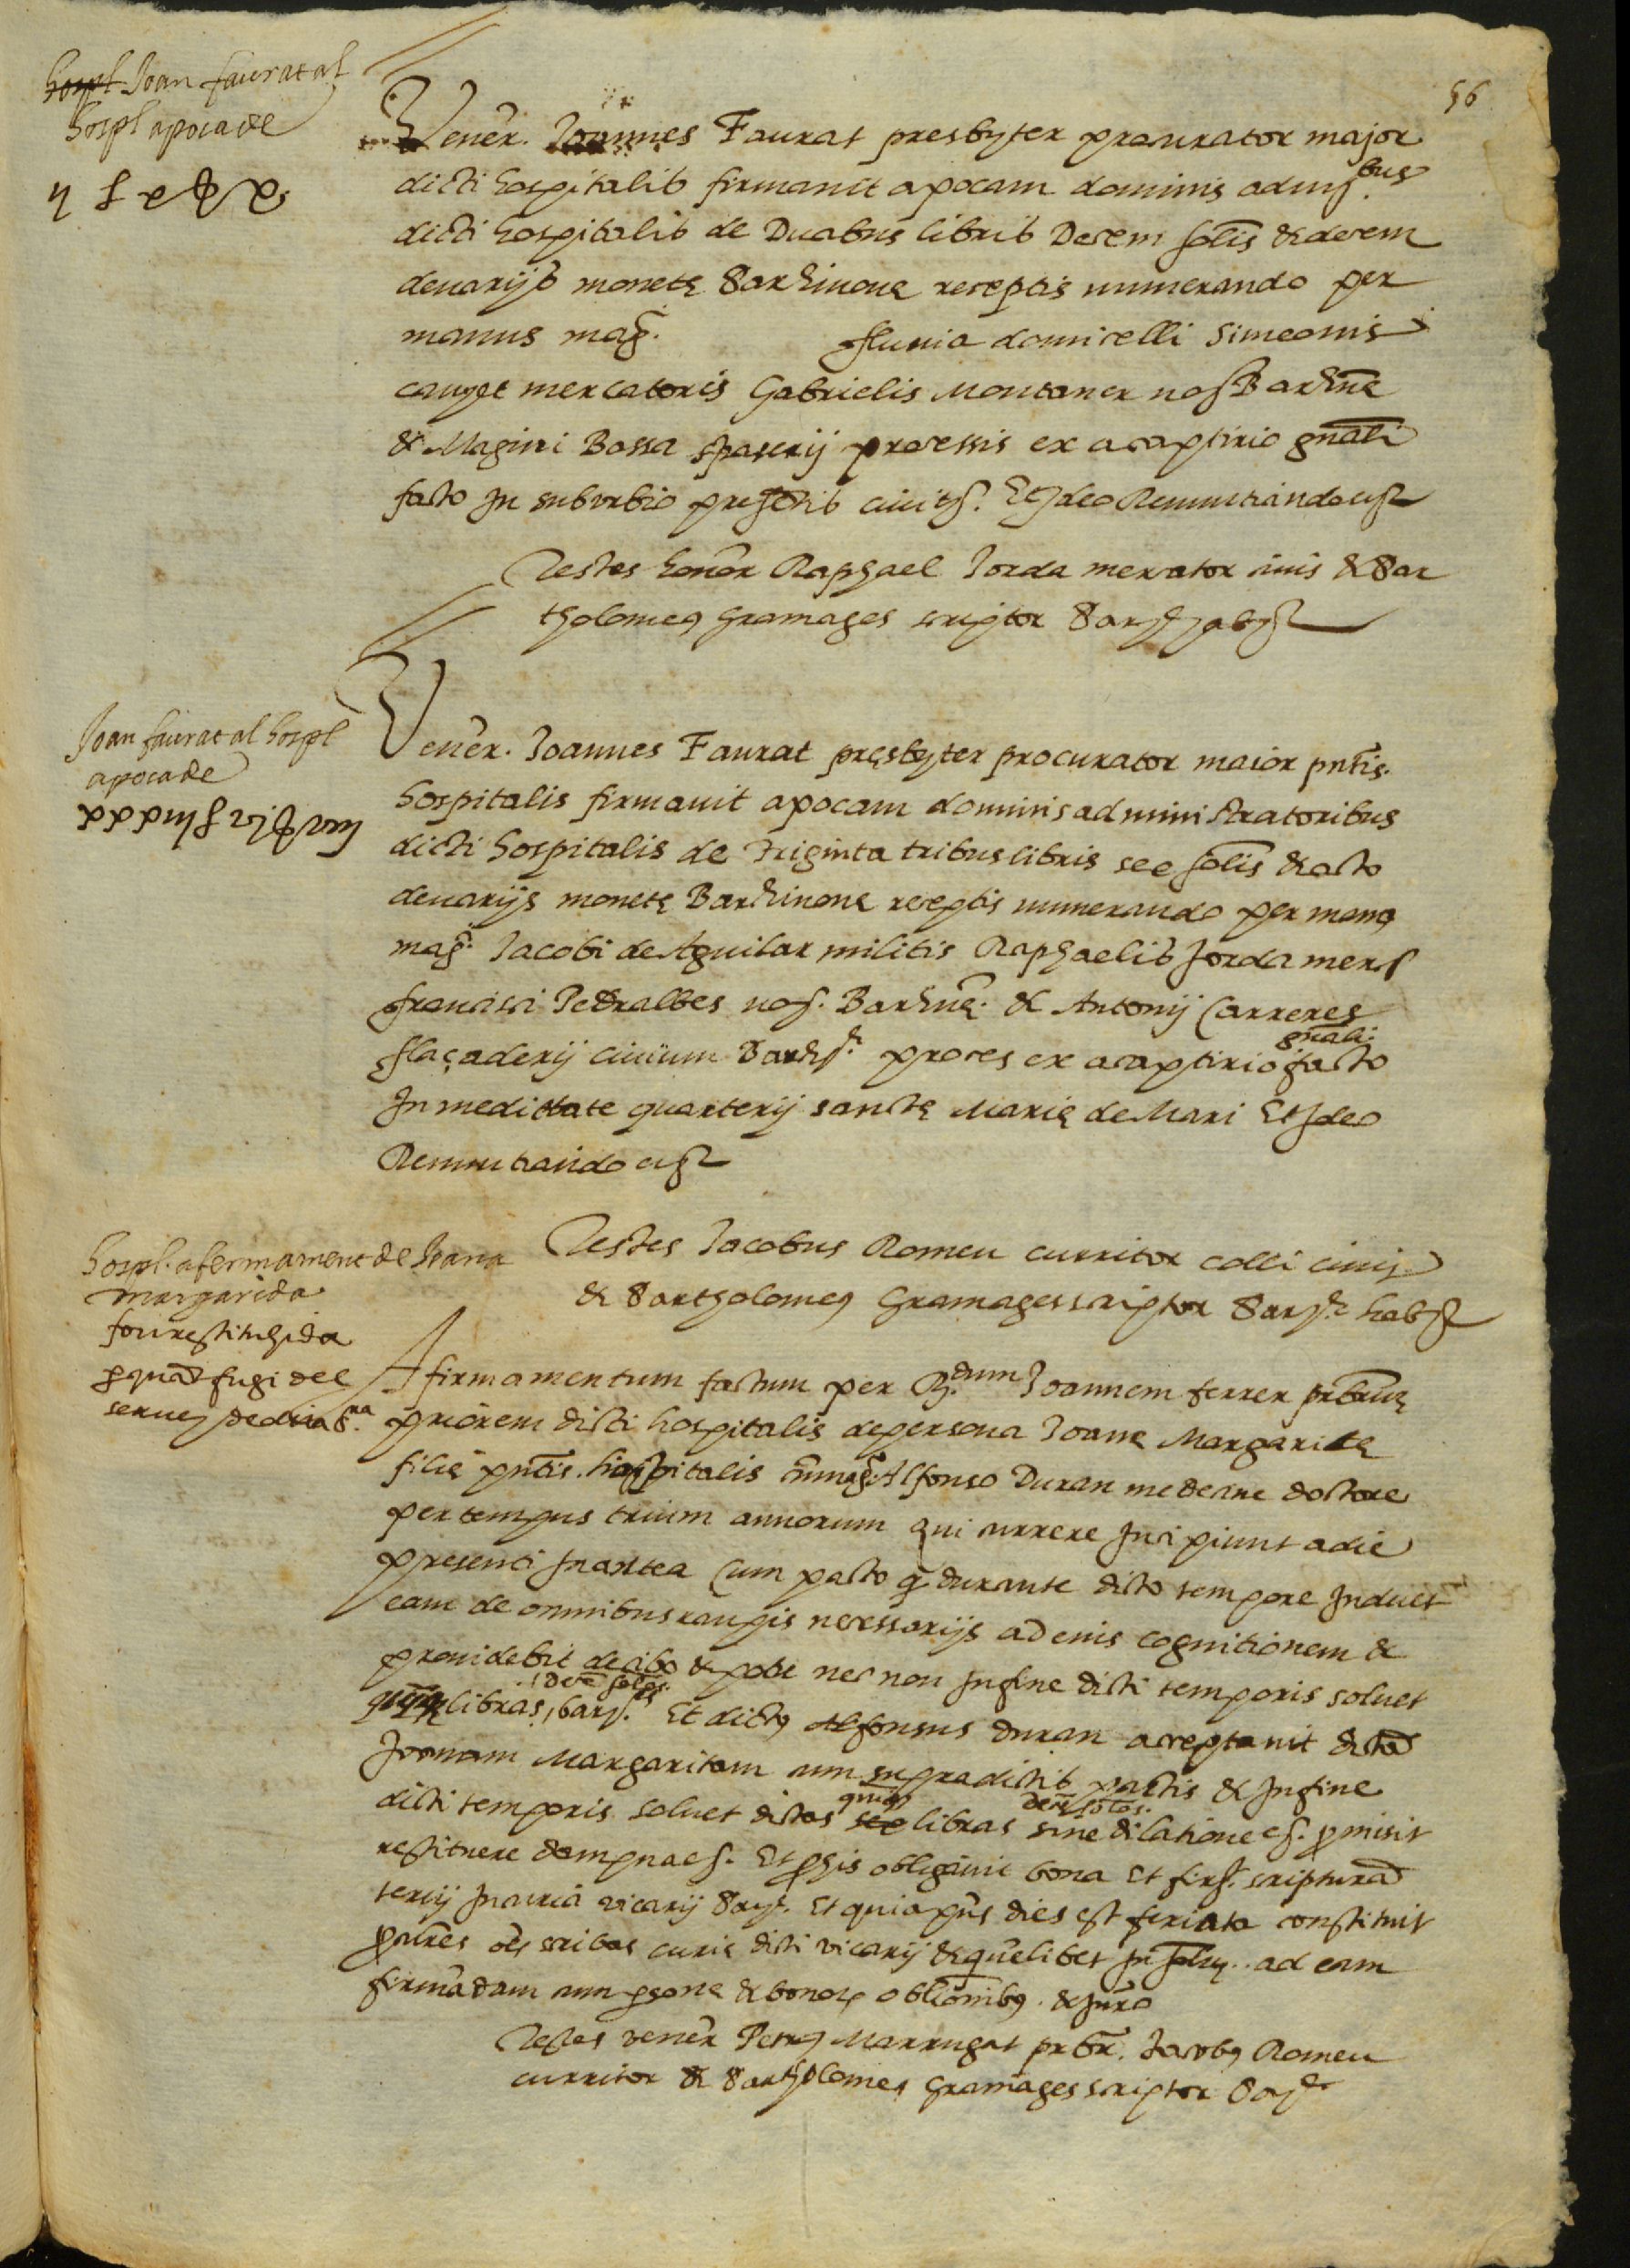 56
Hospl Joan faurat al
hospl apoca de
Vener. Joannes Faurat presbyter procurator major
dicti hospitalis firmavit apocam dominis admi.bus
dicti hospitalis de Duabus libris Decem solis & decem
denarijs monetę Barchinonę receptis numerando per
manus mag.
fluvia domicelli Simeonis
canyet mercatoris Gabrielis Montaner not Barchinę
& Magini Bossa spaserij processis ex acaptirio gnali
facto In suburbio presentis civit. Et Ideo Renuntiando etc
Testes honor Raphael Jorda mercator civis & Bar
tholomeus Gramages scriptor Bar habit
Joan faurat al hospl
apoca de
Vener. Joannes Faurat pręsbyter procurator maior pntis.
hospitalis firmavit apocam dominis administratoribus
dicti hospitalis de triginta tribus libris sex solis & octo
denarijs monetę Barchinonę receptis numerando per manus
mag. Jacobi de Aguilar militis Raphaelis Jorda mer
francisci Pedralbes not. Barchinę. & Antonij Carreres
flaçaderij civium Barch. proces ex acaptirio gnali. facto
In medietate quarterij sanctę Marię de Mari Et Ideo
Renuntiando etc
Testes Jacobus Romeu curritor colli civis
& Bartholomeus Gramages scriptor Bar. habit
hospl. afermament de Joana
margarida
fou restituhida
per quant fugi del
servey de dia
Afirmamentum factum per R.dum Joannem ferrer prbrum
priorem dicti hospitalis de persona Joanę Margaritę
filię pntis. hospitalis cum mag. Alfonso Duran medecine doctore
per tempus trium annorum qui currere Incipiunt a die
presenti In antea Cum pacto q durante dicto tempore Induet
eam de omnibus raupis necessarijs ad eius cognitionem &
providebit de cibo & potu nec non In fine dicti temporis solvet
quinq libras, decem solos. bar. Et dictus Alfonsus Duran acceptavit dictam
Joanam Margaritam cum supradictis pactis & In fine
dicti temporis solvet dictas sex quinq libras decem solos. sine dilatione etc. promisit
restituere dampna etc. Et pro his obligavit bona Et fir. scripturam
tercij In curia vicarij Bar. Et quia pns dies est feriata constituit
procures oes scribas curię dicti vicarij & quelibet In solid. ad eam
firmadam cum psone & bonor oblionibus. & Juro
Testes vener Petrus Marrugat prbr. Jacobus Romeu
curritor & Bartholomeus Gramages scriptor Bar